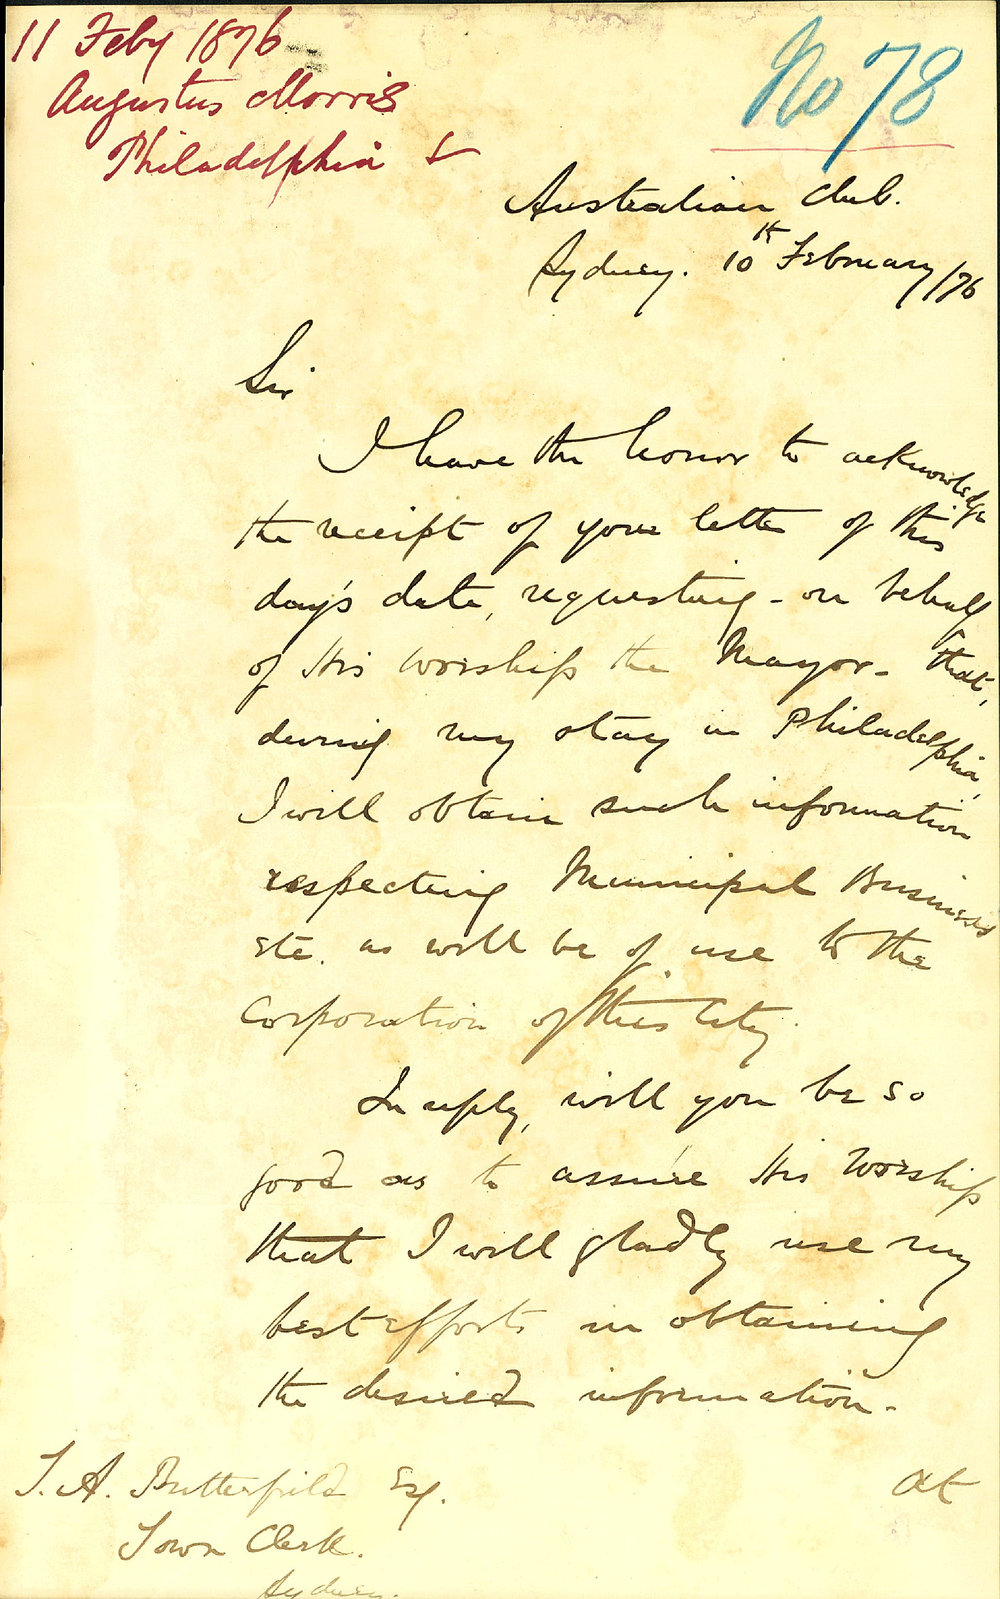 11 Feby 1876
Augustus Morris
Philadelphia &
No 78
Australian Club.
Sydney. 10th February/76
Sir
I have the honor to acknowledge
the receipt of your letter of this
day's date, requesting - on behalf
of His Worship the Mayor - that,
during my stay in Philadelphia,
I will obtain such information
respecting Municipal Business
etc. as will be of use to the
Corporation of this City.
In reply, will you be so
good as to assure His Worship
that I will gladly use my
best efforts in obtaining
the desired information.
At
T. A. Butterfield Esq.
Town Clerk.
Sydney.